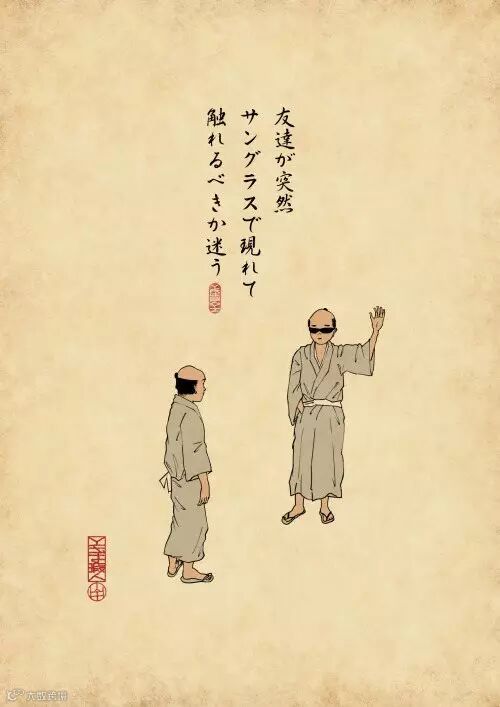 友達が突然
サングラスで現れて
触れるべきか迷う